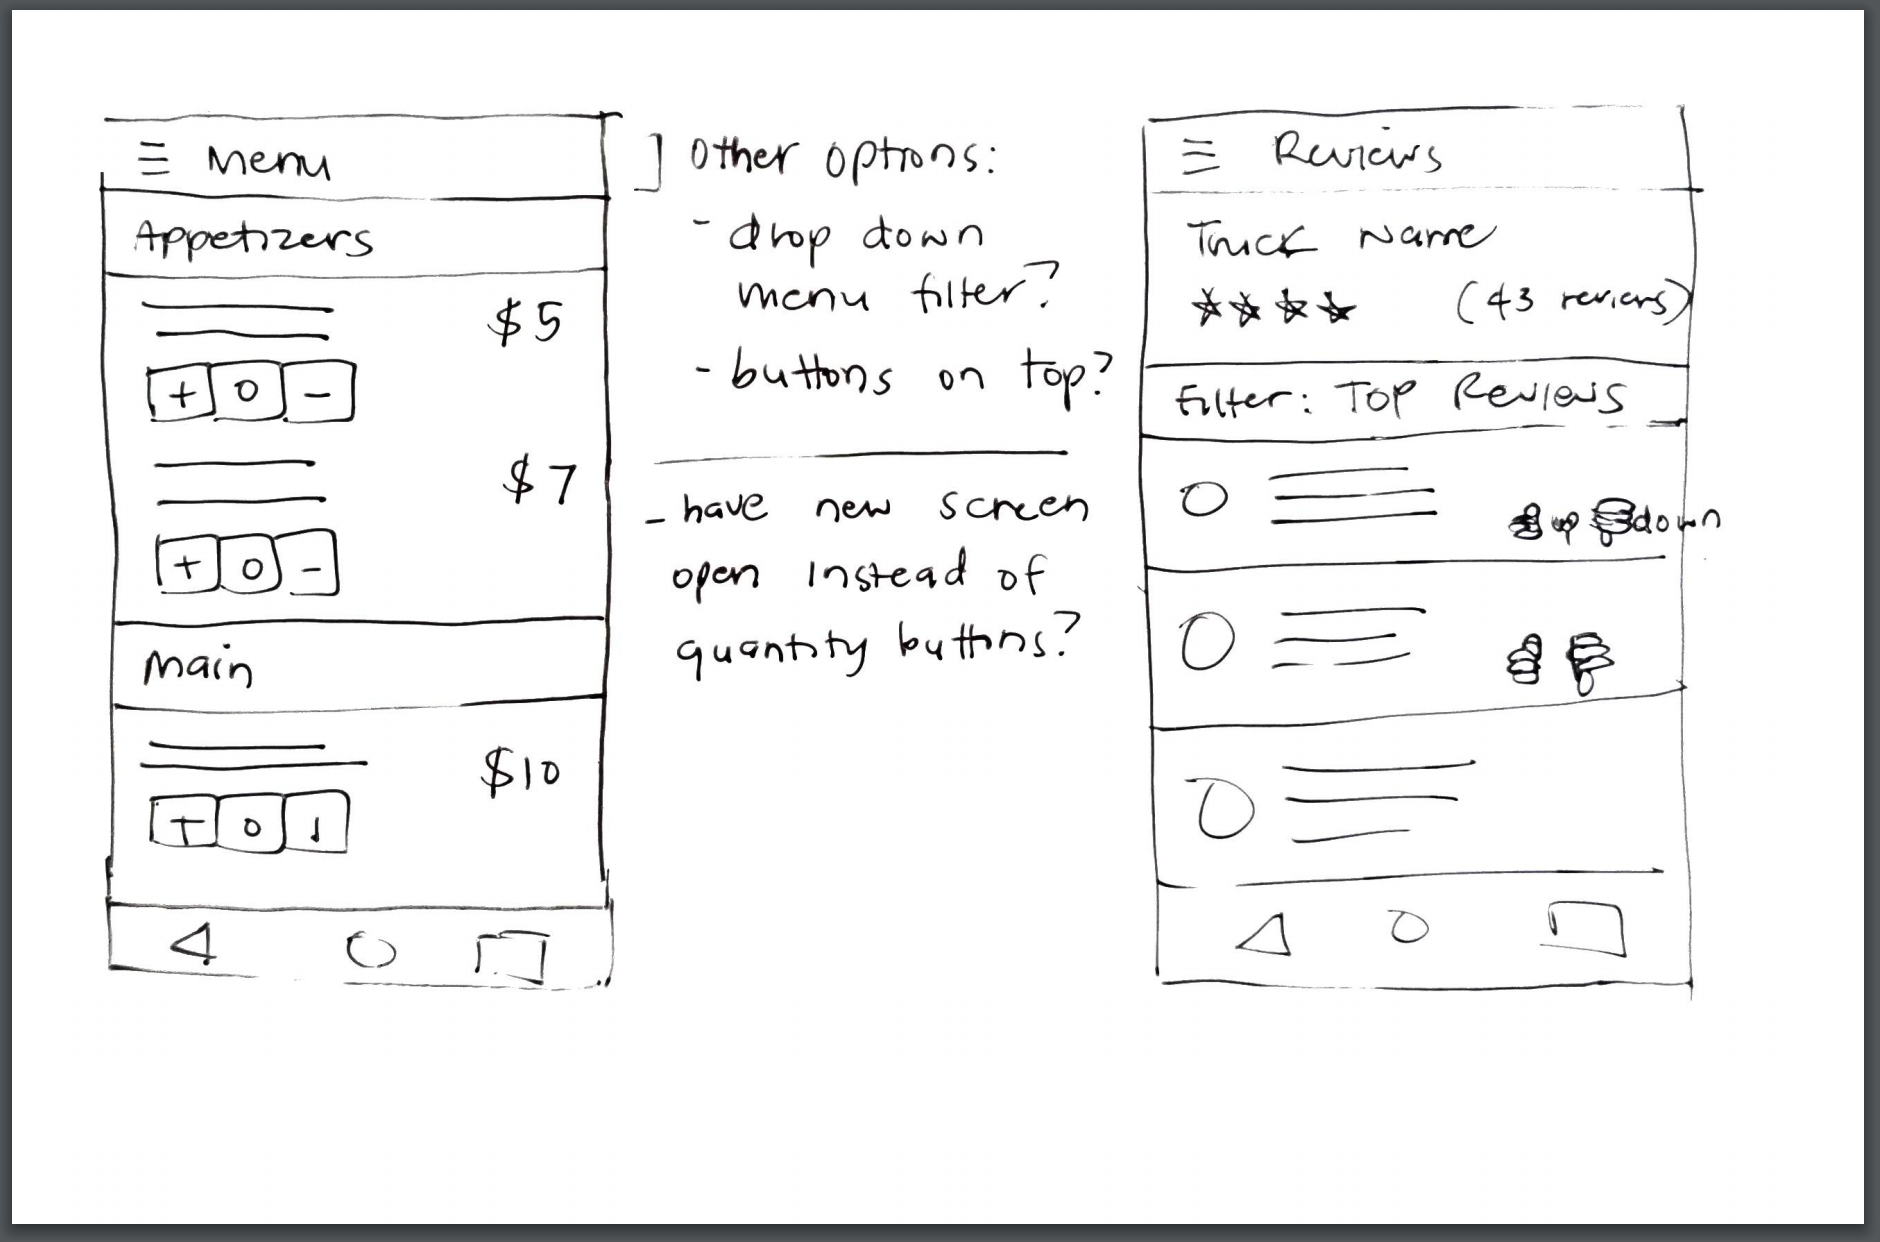 Menu
Appetizers
$5
+ 0 -
$7
+ 0 -
Main
$10
+ 0 -
Other options:
- drop down
menu filter?
- buttons on top?
- have new screen
open instead of
quantity buttons?
Reviews
Truck Name
(43 reviews)
Filter: Top Reviews
up down